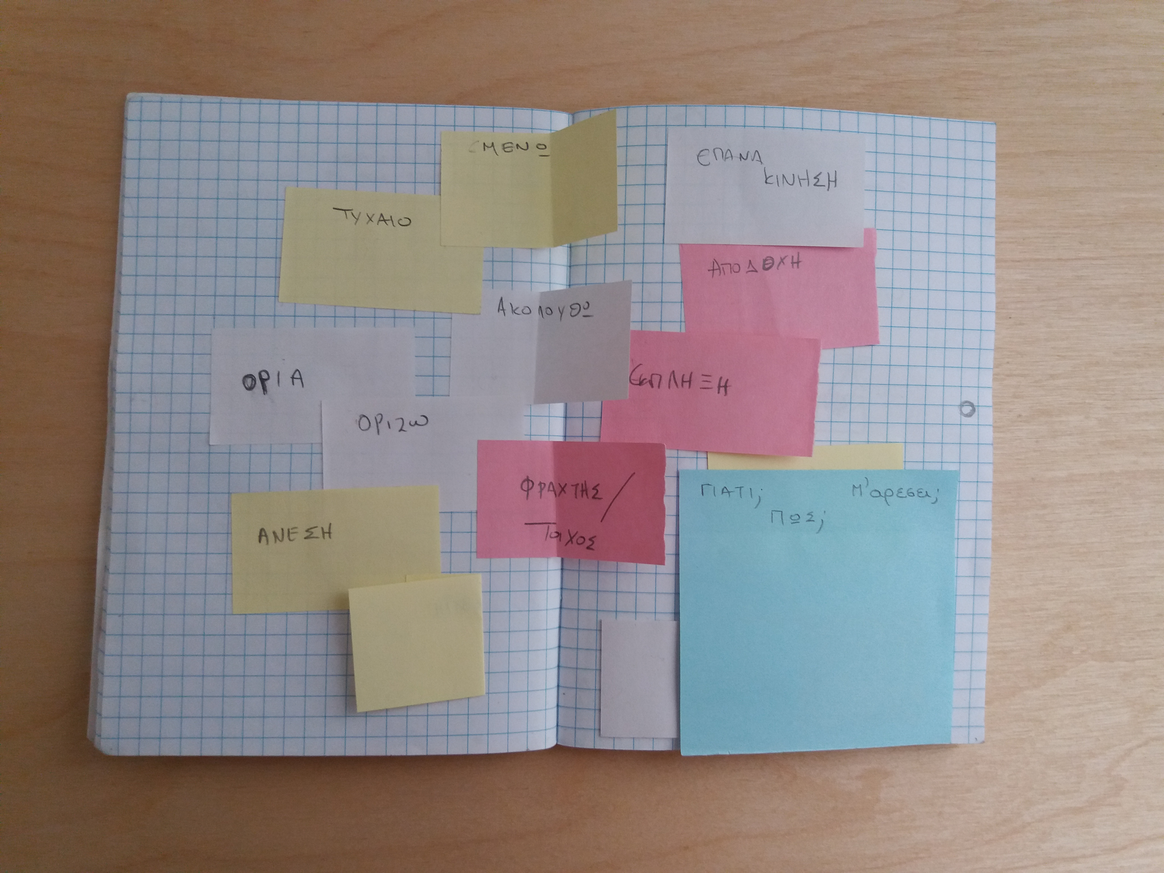 ΜΕΝΩ
ΕΠΑΝΑ
ΚΙΝΗΣΗ
ΤΥΧΑΙΟ
ΑΠΟΔΟΧΗ
ΑΚΟΛΟΥΘΩ
ΟΡΙΑ
ΕΚΠΛΗΞΗ
ΟΡΙΖΩ
ΦΡΑΧΤΗΣ/
Τοίχος
ΓΙΑΤΙ;
Μ'αρεσει;
ΠΩΣ;
ΑΝΕΣΗ